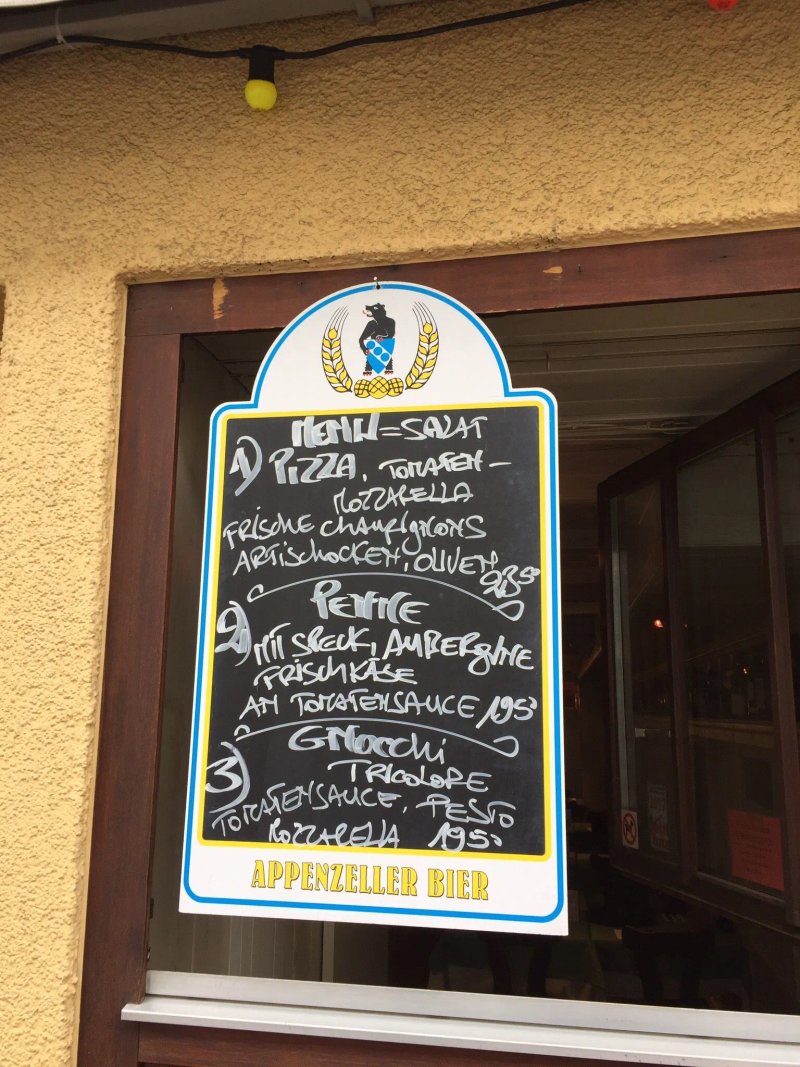 MENU = SALAT
1) PIZZA, TOMATEN-
MOZZARELLA
FRISCHE CHAMPIGNONS
ARTISCHOCKEN, OLIVEN
23.50
2) PENNE
MIT SPECK, AUBERGINE
FRISCHKÄSE
AN TOMATENSAUCE 19.50
3) GNOCCHI
TRICOLORE
TOMATENSAUCE, PESTO
MOZZARELLA 19.50
APPENZELLER BIER